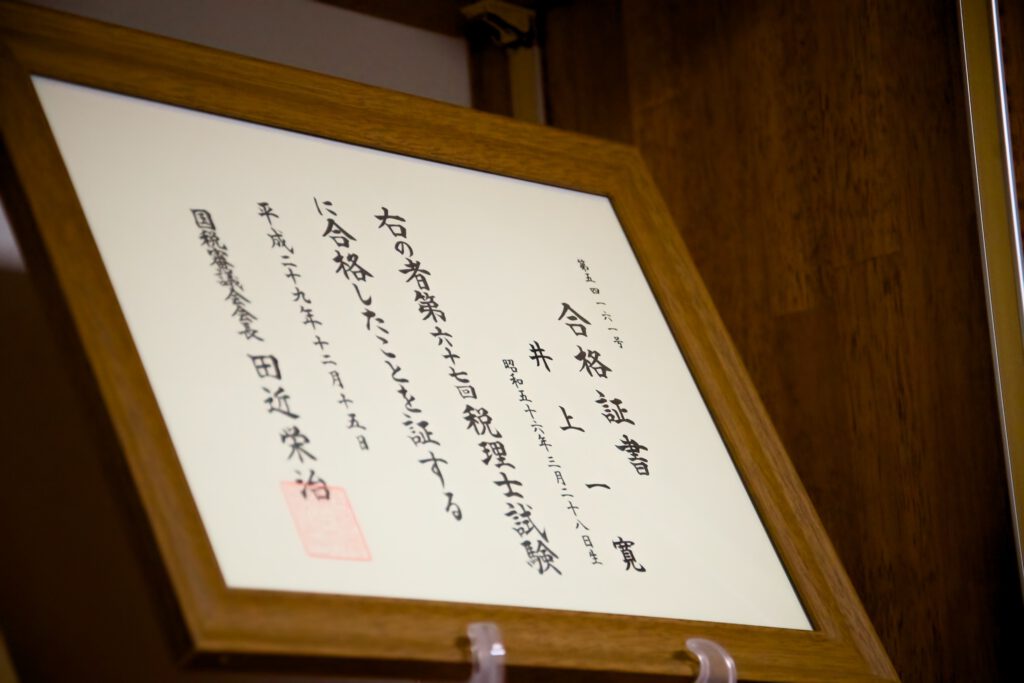 第五四一六一号
合格証書
井上一寛
昭和五十六年三月二十八日生
右の者第六十七回税理士試験
に合格したことを証する
平成二十九年十二月十五日
国税審議会会長 田近栄治